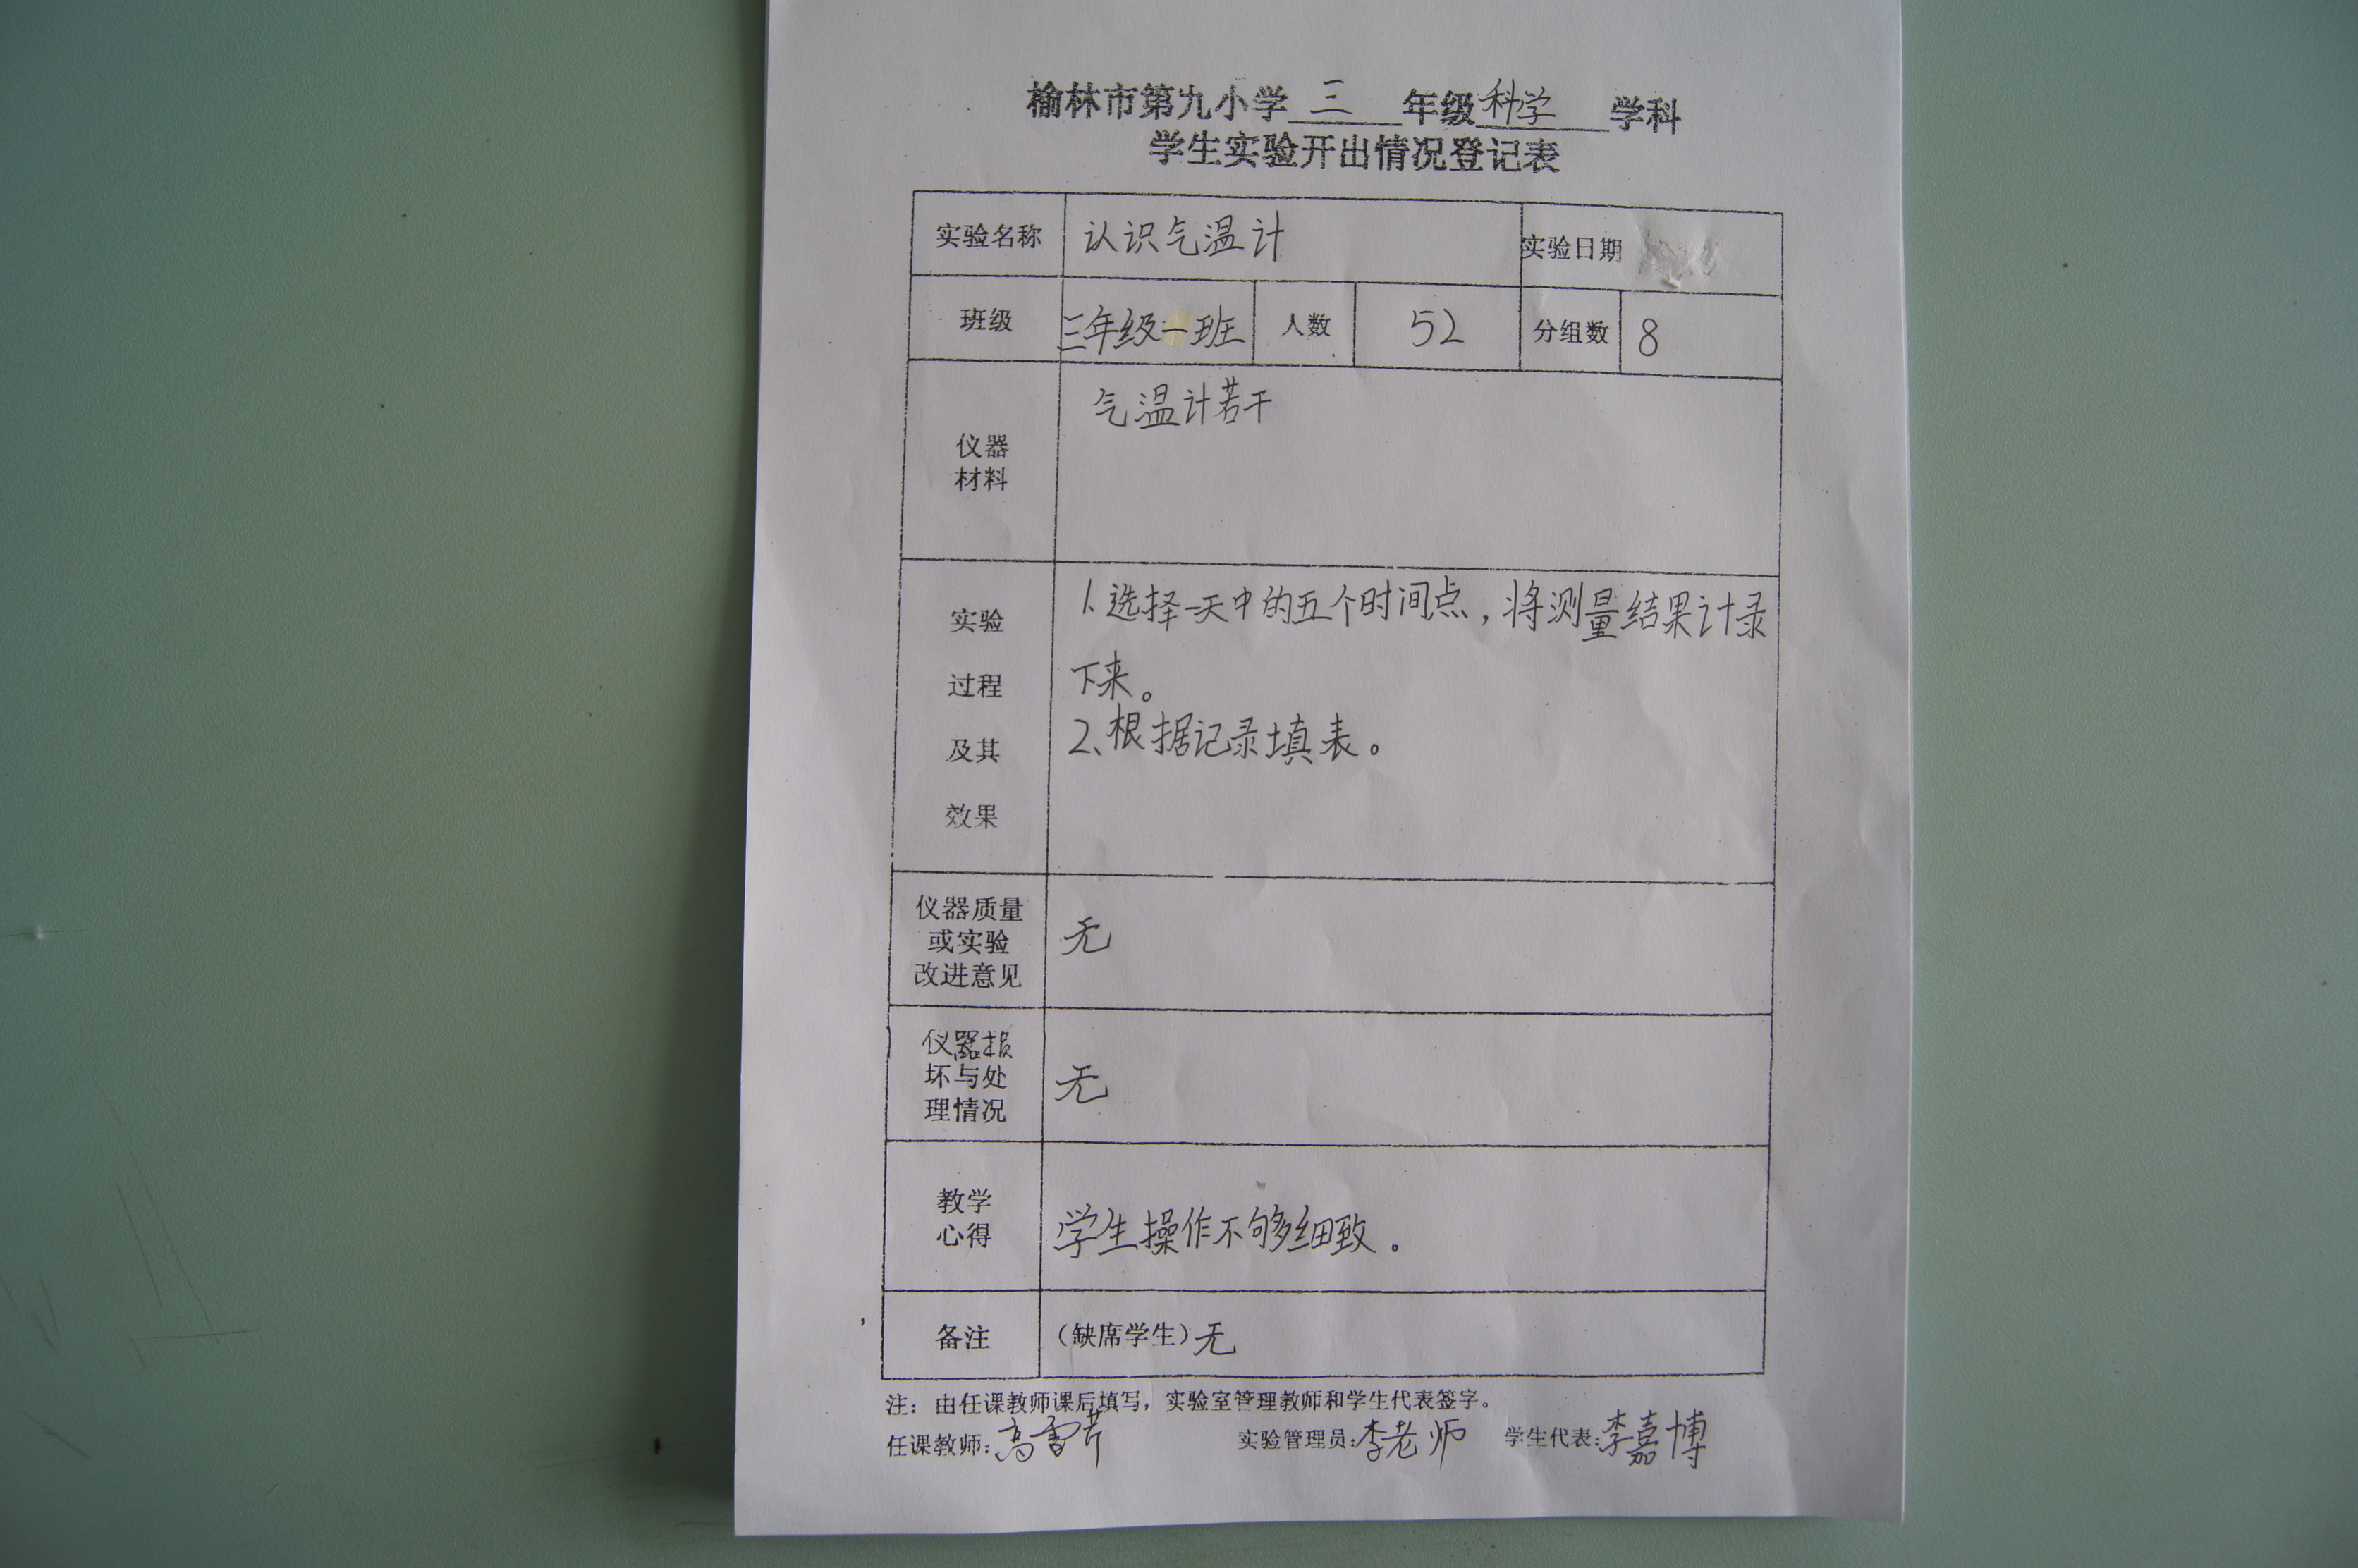 榆林市第九小学三年级科学学科
学生实验开出情况登记表
实验名称 认识气温计 实验日期
班级 三年级一班 人数 52 分组数 8
仪器
材料
气温计若干
实验
过程
及其
效果
1.选择一天中的五个时间点，将测量结果计录
下来。
2、根据记录填表。
仪器质量
或实验
改进意见
无
仪器损
坏与处
理情况
无
教学
心得
学生操作不够细致。
备注 （缺席学生）无
注：由任课教师课后填写，实验室管理教师和学生代表签字。
任课教师：高雪芹 实验管理员：李老师 学生代表：李嘉博